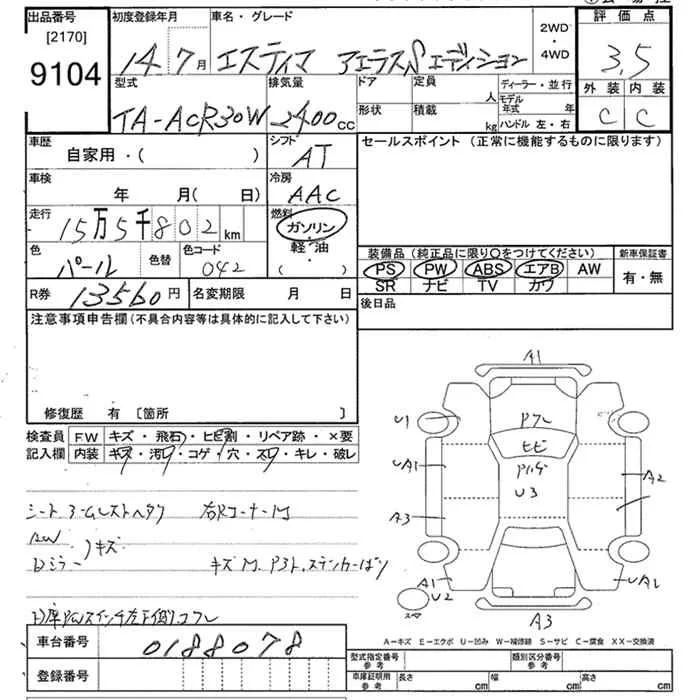 出品番号 初度登録年月 車名・グレード 2WD・4WD 評価点
[2170]
9104 14 7月 エスティマ アエラスSエディション 3.5
型式 排気量 ドア 定員 人 ディーラー・並行 外装 内装
TA-ACR30W 2400cc 形状 積載 kg モデル年式 年 C C
ハンドル 左・右
車歴 シフト セールスポイント (正常に機能するものに限ります)
自家用・( ) AT
車検 冷房
年 月(日) AAC
走行 燃料
15万5千802km ガソリン
軽・油
( )
色 色替 色コード 装備品 (純正品に限り○をつけてください) 新車保証書
パール 042 PS PW ABS エアB AW 有・無
SR ナビ TV カワ
R券 13560円 名変期限 月 日 後日品
注意事項申告欄 (不具合内容等は具体的に記入して下さい)
修復歴 有 [箇所 ]
検査員 FW キズ・飛石・ヒビ割・リペア跡・×要
記入欄 内装 キズ・汚レ・コゲ・穴・スレ・キレ・破レ
シート アームレストヘタリ 右Rコーナー
キズ
Dミラー
キズ
A1
U1
UA1
A3
A1
U2
ヒビ
U3
A2
UA1
A3
スマ
A-キズ E-エクボ U-凹み W-補修跡 S-サビ C-腐食 XX-交換済
車台番号 0188078
登録番号
型式指定番号 参考 類別区分番号 参考
車庫証明用 参考 長さ cm 幅 cm 高さ cm